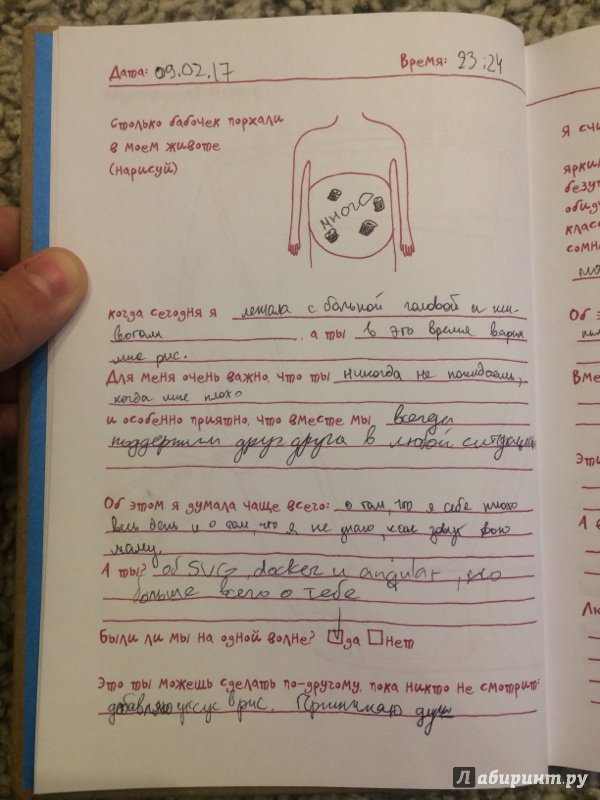 Дата: 09.02.17
Время: 23:24
столько бабочек порхали
в моем животе
(нарисуй)
много
когда сегодня я лежала с больной головой и жи-
вотом, а ты в это время варил
мне рис.
Для меня очень важно, что ты никогда не покидаешь,
когда мне плохо
и особенно приятно, что вместе мы всегда
поддержим друг друга в любой ситуации
Об этом я думала чаще всего: о том, что я себе плохо
весь день и о том, что я не знаю, как зовут твою
маму.
А ты? об SVG, docker и angular, но
больше всего о тебе
Были ли мы на одной волне? да нет
Это ты можешь сделать по-другому, пока никто не смотрит:
добавляю уксус в рис. Принимаю душ
Я счи
ярки
безу
обид
класс
сомн
Об э
Вме
Эти
А в
Лю
Лабиринт.ру